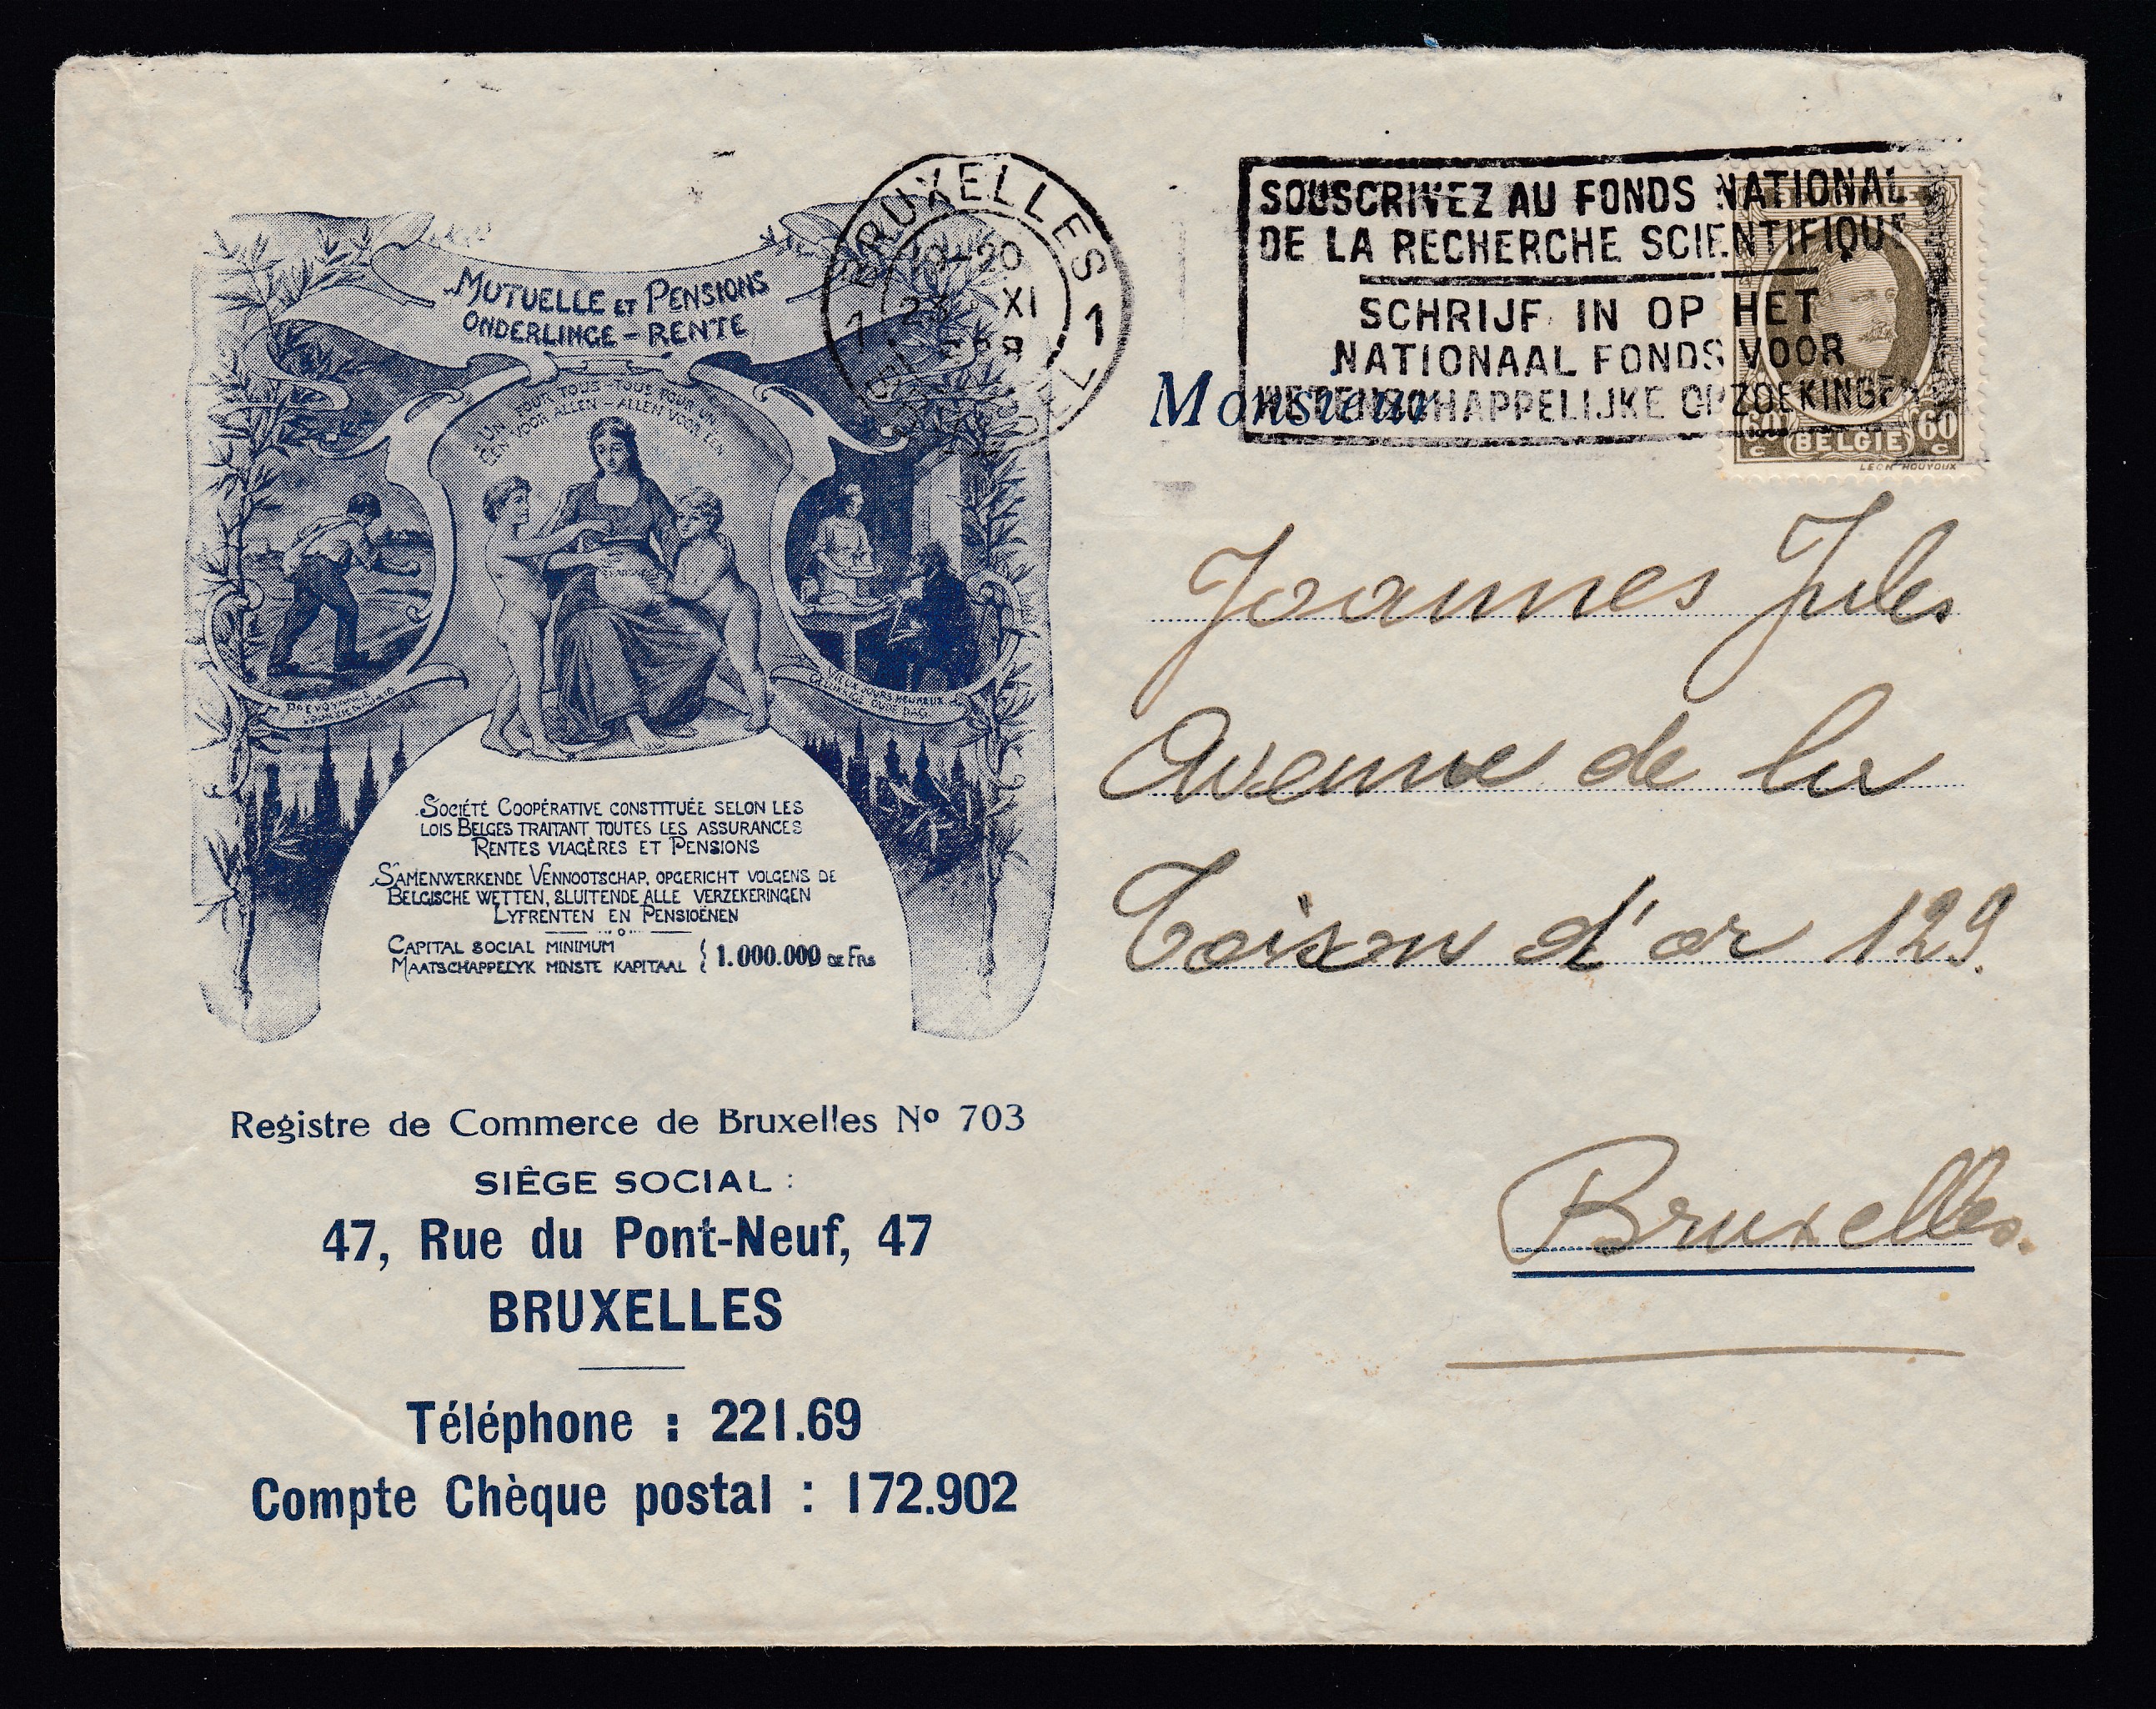 MUTUELLE ET PENSIONS
ONDERLINGE - RENTE
UN POUR TOUS - TOUS POUR UN
EEN VOOR ALLEN - ALLEN VOOR EEN
VIEUX JOURS HEUREUX
GELUKKIGE OUDE DAG
SOCIÉTÉ COOPÉRATIVE CONSTITUÉE SELON LES
LOIS BELGES TRAITANT TOUTES LES ASSURANCES
RENTES VIAGÈRES ET PENSIONS
SAMENWERKENDE VENNOOTSCHAP, OPGERICHT VOLGENS DE
BELGISCHE WETTEN, SLUITENDE ALLE VERZEKERINGEN
LYFRENTEN EN PENSIOËNEN
CAPITAL SOCIAL MINIMUM
MAATSCHAPPELYK MINSTE KAPITAAL { 1.000.000 DE FRS
Registre de Commerce de Bruxelles Nº 703
SIÈGE SOCIAL :
47, Rue du Pont-Neuf, 47
BRUXELLES
Téléphone : 221.69
Compte Chèque postal : 172.902
BRUXELLES
20
23 XI
1 1
SOUSCRIVEZ AU FONDS NATIONAL
DE LA RECHERCHE SCIENTIFIQUE
SCHRIJF IN OP HET
NATIONAAL FONDS VOOR
WETENSCHAPPELIJKE OPZOEKINGEN
60 BELGIE 60
c c
LEON HOUYOUX
Monsieur
Joannes Jules
Avenue de la
Toison d'or 129.
Bruxelles.